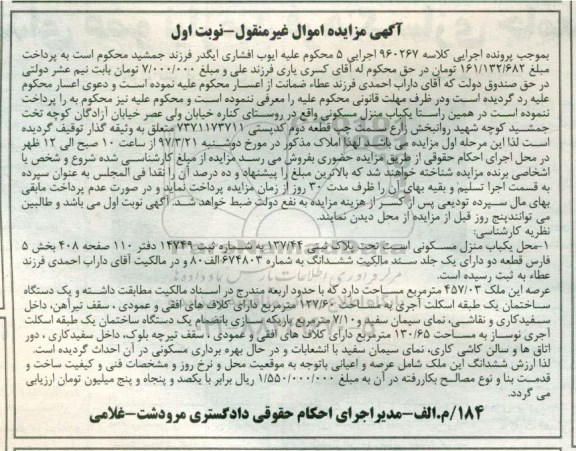 آگهی مزایده اموال غیرمنقول-نوبت اول
بموجب پرونده اجرایی کلاسه ۹۶۰۲۶۷ اجرایی ۵ محکوم علیه ایوب افشاری ایگدر فرزند جمشید محکوم است به پرداخت
مبلغ ۱۶۱/۱۳۲/۶۸۲ تومان در حق محکوم له آقای کسری یاری فرزند علی و مبلغ ۷/۰۰۰/۰۰۰ تومان بابت نیم عشر دولتی
در حق صندوق دولت که آقای داراب احمدی فرزند عطاء ضمانت از اعسار محکوم علیه نموده است و دعوی اعسار محکوم
علیه رد گردیده است ودر ظرف مهلت قانونی محکوم علیه را معرفی ننموده است و محکوم علیه نیز محکوم به را پرداخت
ننموده است در همین راستا یکباب منزل مسکونی واقع در روستای کناره خیابان ولی عصر خیابان آزادگان کوچه تخت
جمشید کوچه شهید روانبخش زارع سمت چپ قطعه دوم کدپستی ۷۳۷۱۱۷۳۷۱۱ متعلق به وثیقه گذار توقیف گردیده
است لذا این مرحله اول مزایده می باشد لهذا املاک مذکور در مورخ دوشنبه ۹۷/۳/۲۱ از ساعت ۱۰ صبح الی ۱۲ ظهر
در محل اجرای احکام حقوقی از طریق مزایده حضوری بفروش می رسد مزایده از مبلغ کارشناسی شده شروع و شخص یا
اشخاصی برنده مزایده شناخته خواهند شد که بالاترین مبلغ را پیشنهاد و ده درصد آن را نقدا فی المجلس به عنوان سپرده
به قسمت اجرا تسلیم و بقیه بهای آن را ظرف مدت ۳۰ روز از زمان مزایده پرداخت نماید و در صورت عدم پرداخت مابقی
بهای مال سپرده تودیعی پس از کسر از هزینه مزایده به نفع دولت ضبط خواهد شد. آگهی نوبت اول می باشد و طالبین
می توانندپنج روز قبل از مزایده از محل دیدن نمایند.
نظریه کارشناسی:
۱-محل یکباب منزل مسکونی است تحت پلاک ثبتی ۱۳۷/۴۴ به شماره ثبت ۱۴۷۴۹ دفتر ۱۱۰ صفحه ۴۰۸ بخش ۵
فارس قطعه دو دارای یک جلد سند مالکیت ششدانگ به شماره ۶۷۴۸۰۳ الف۸۰ و در مالکیت آقای داراب احمدی فرزند
عطاء به ثبت رسیده است.
عرصه این ملک ۴۵۷/۰۳ مترمربع مساحت دارد که با حدود اربعه مندرج در اسناد مالکیت مطابقت داشته و یک دستگاه
ساختمان یک طبقه اسکلت آجری به مساحت ۱۲۷/۶۰ مترمربع دارای کلاف های افقی و عمودی ، سقف تیرآهن، داخل
سفیدکاری و نقاشی، نمای سیمان سفید و ۷/۱۰ مترمربع باریکه سازی بانضمام یک دستگاه ساختمان یک طبقه اسکلت
آجری نوساز به مساحت ۱۳۰/۶۵ مترمربع دارای کلاف های افقی و عمودی ، سقف تیرچه بلوک، داخل سفیدکاری ، دور
اتاق ها و سالن کاشی کاری، نمای سیمان سفید با انشعابات و در حال بهره برداری مسکونی در آن احداث گردیده است.
لذا ارزش ششدانگ این ملک شامل عرصه و اعیانی باتوجه به موقعیت محل و نرخ روز و مشخصات فنی و کیفیت ساخت و
قدمت بنا و نوع مصالح بکاررفته در آن به مبلغ ۱/۵۵۰/۰۰۰/۰۰۰ ریال برابر با یکصد و پنجاه و پنج میلیون تومان ارزیابی
می گردد.
۱۸۴/م.الف-مدیراجرای احکام حقوقی دادگستری مرودشت-غلامی